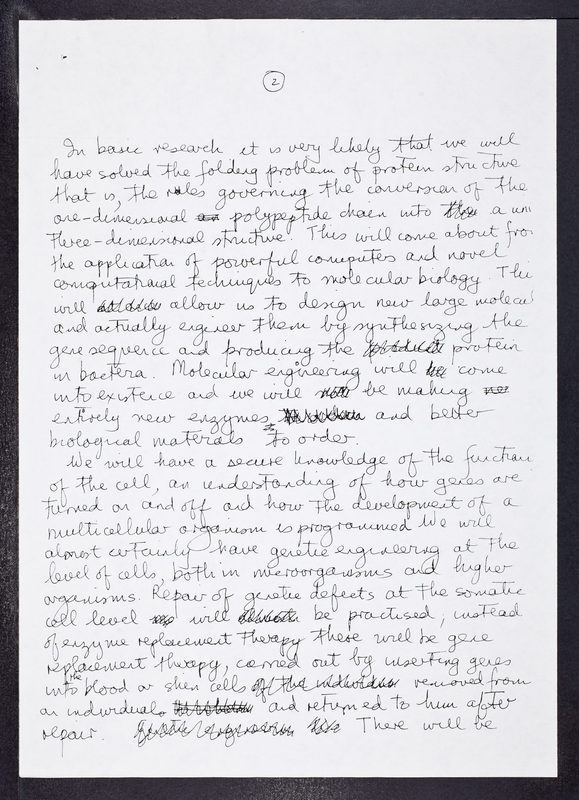 2
In basic research it is very likely that we will
have solved the folding problem of protein structure
that is, the rules governing the conversion of the
one-dimensional polypeptide chain into a uni
three-dimensional structure. This will come about fro
the application of powerful computers and novel
computational techniques to molecular biology. Thi
will allow us to design new large molecul
and actually engineer them by synthesizing the
gene sequence and producing the protein
in bacteria. Molecular engineering will come
into existence and we will be making
entirely new enzymes and better
biological materials to order.
We will have a secure knowledge of the function
of the cell, an understanding of how genes are
turned on and off and how the development of a
multicellular organism is programmed. We will
almost certainly have genetic engineering at the
level of cells, both in microorganisms and higher
organisms. Repair of genetic defects at the somatic
cell level will be practised; instead
of enzyme replacement therapy there will be gene
replacement therapy, carried out by inserting genes
into the blood or skin cells of the individual removed from
an individual and returned to him after
repair. There will be